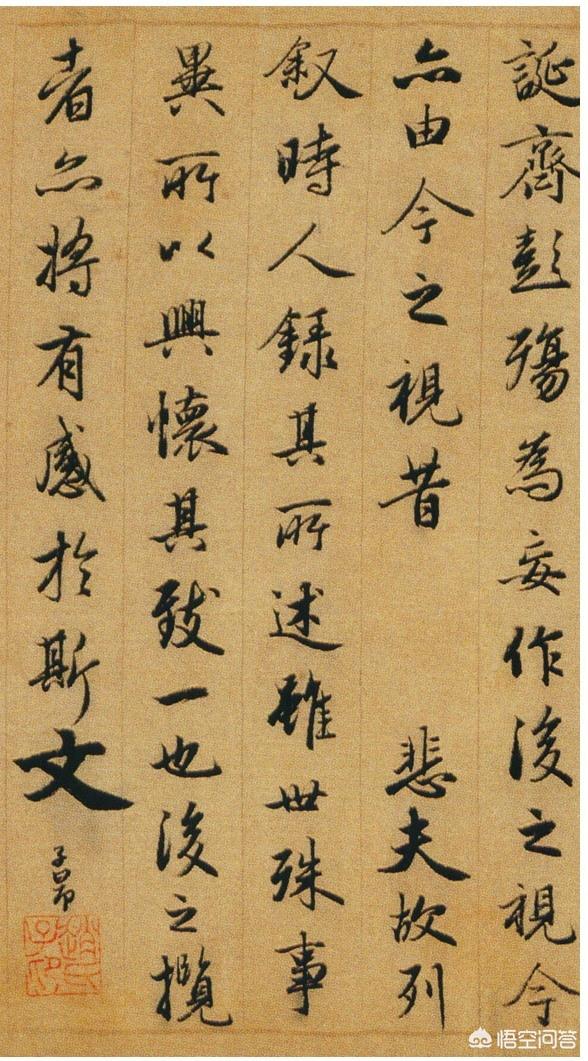 誕齊彭殤為妄作後之視今
亦由今之視昔 悲夫故列
叙時人録其所述雖世殊事
異所以興懷其致一也後之攬
者亦将有感於斯文
子昂
趙氏子昂
悟空问答